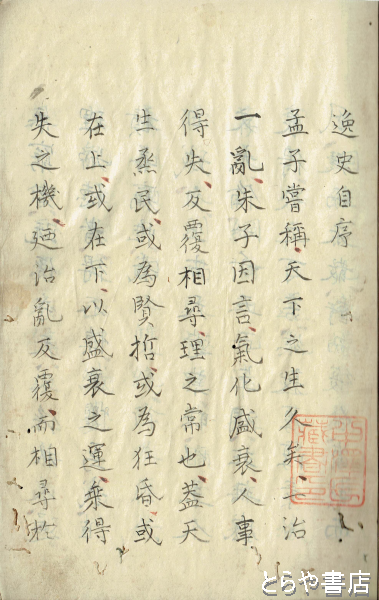 逸史自序
孟子嘗稱天下之生久矣一治
一亂朱子因言氣化盛衰人事
得失反覆相尋理之常也蓋天
生烝民或為賢哲或為狂昏或
在上或在下以盛衰之運乗得
失之機廼治亂反覆而相尋於
藏書
とらや書店